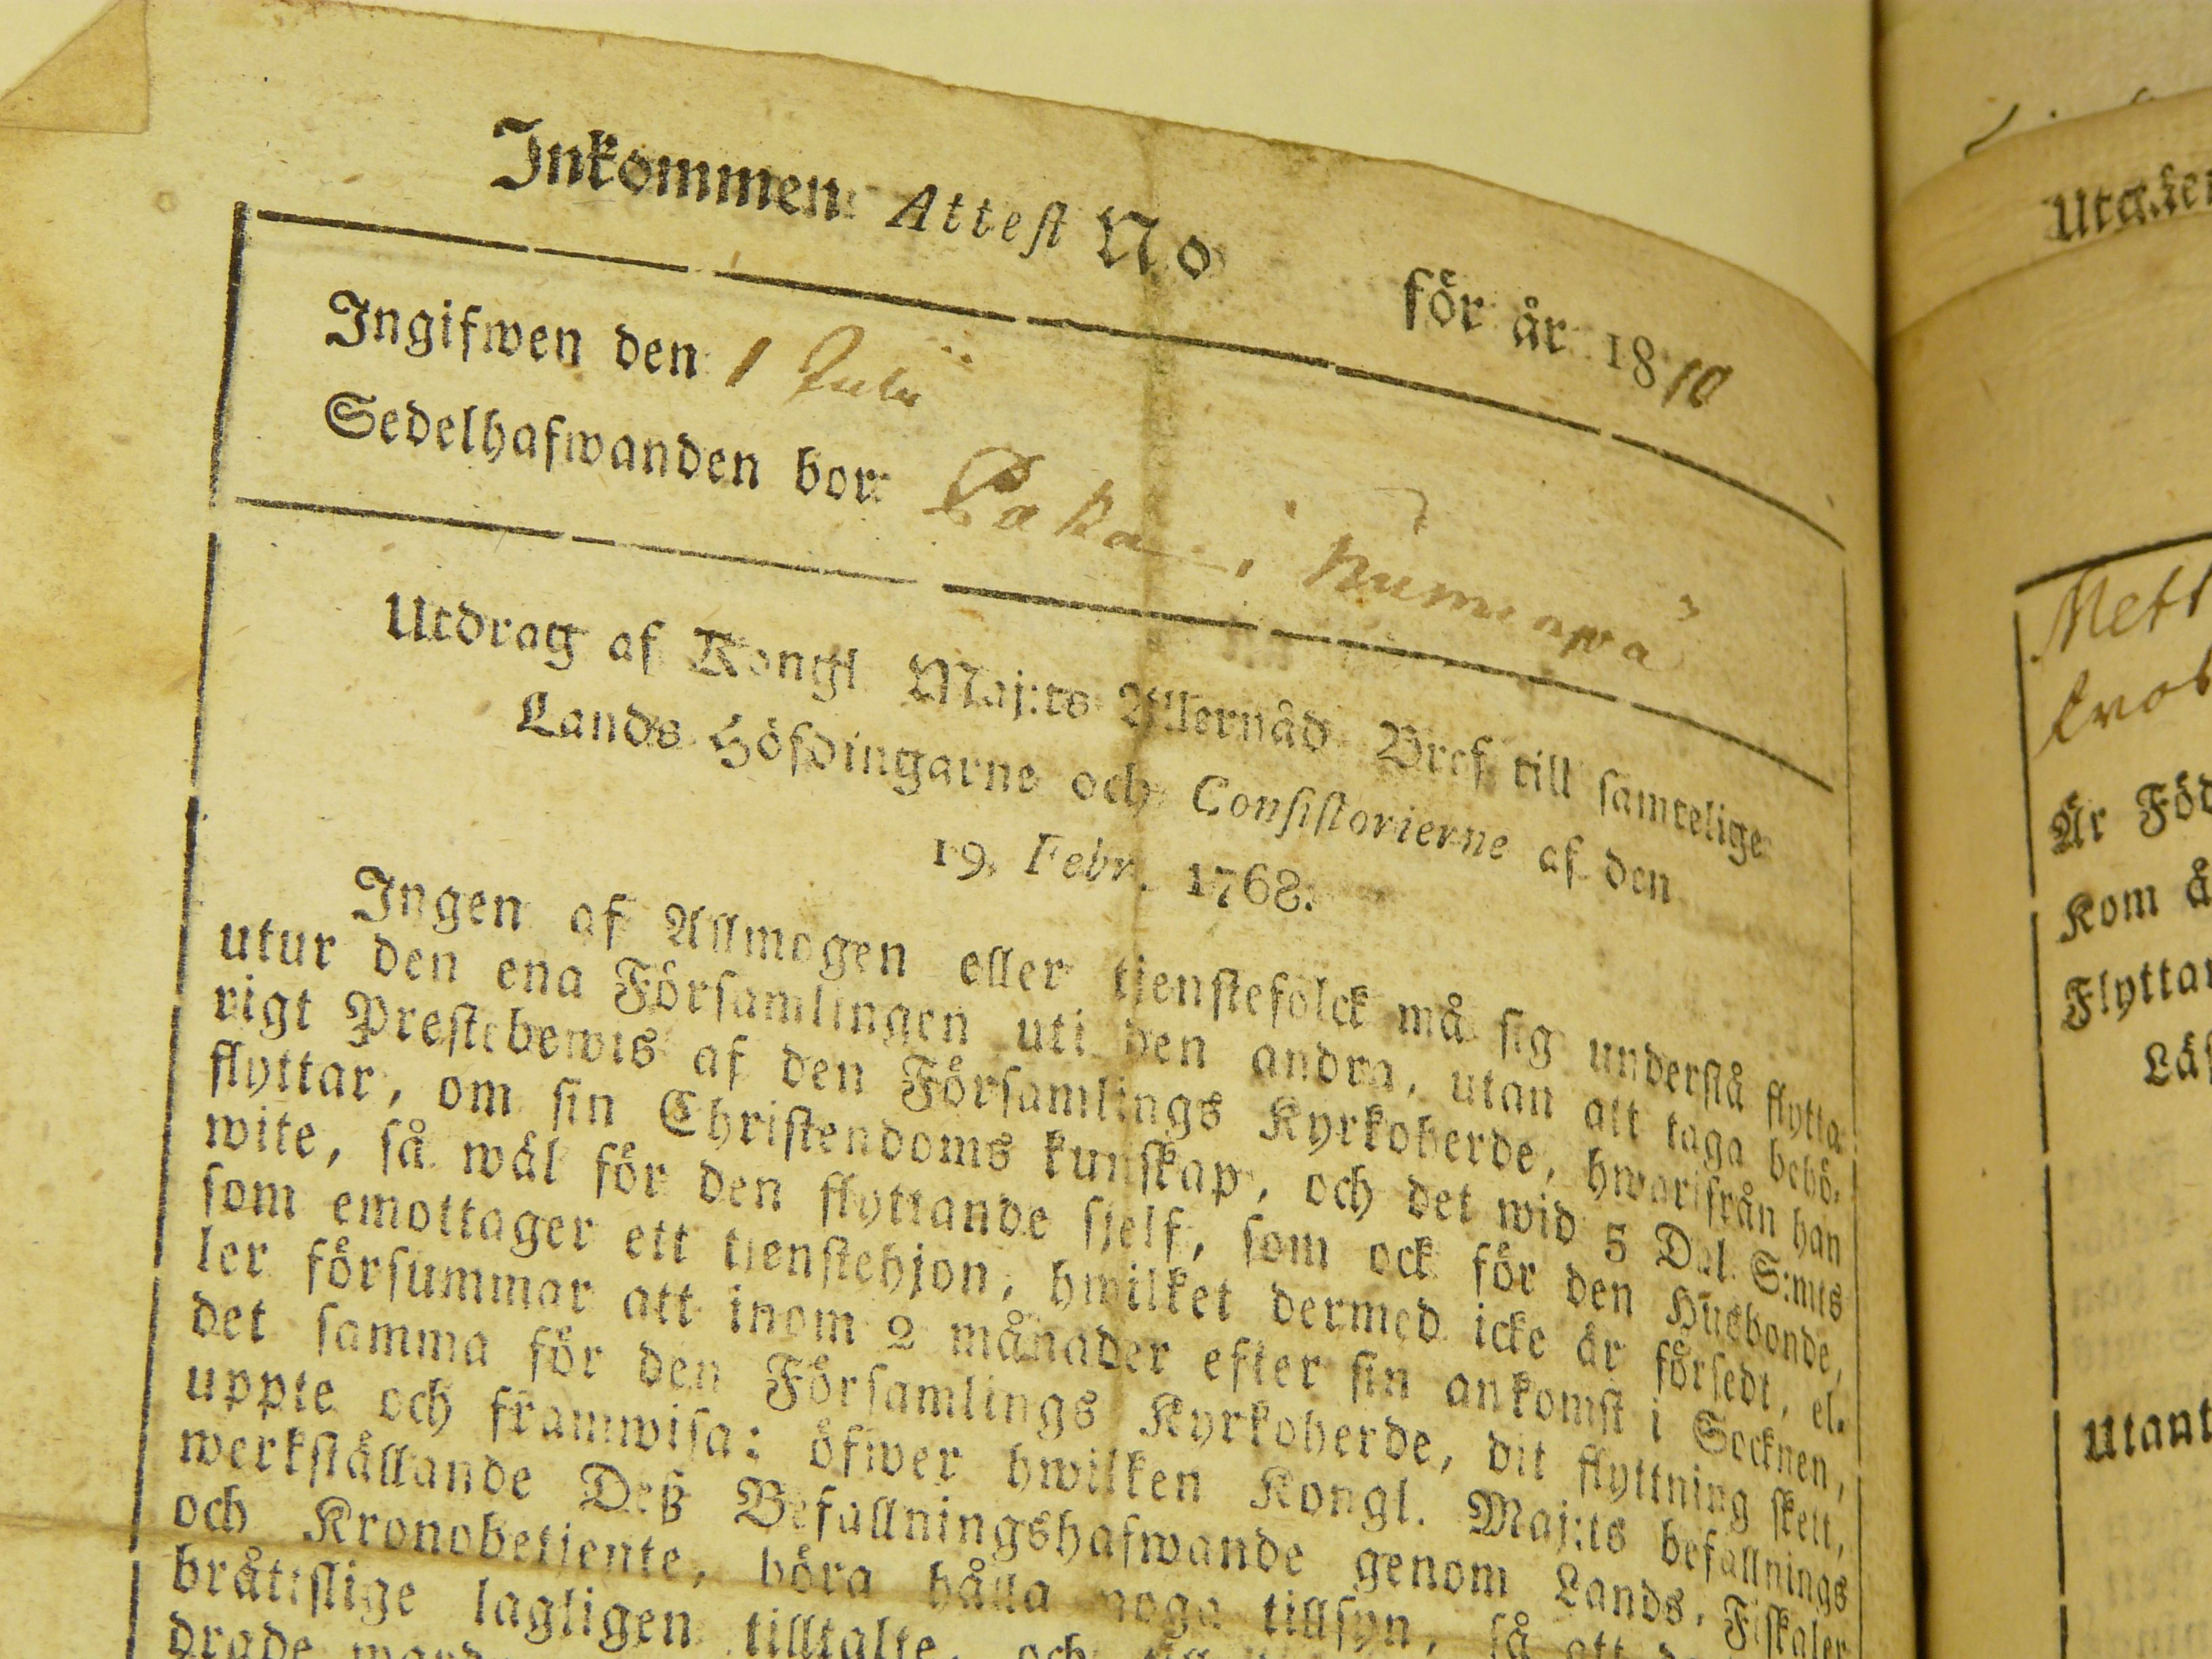 Inkommen Attest No för år 1810
Ingifwen den 1 Julii
Sedelhafwanden bor Paka i Numenpä
Utdrag af Kongl Maj:ts Allernåd Bref till samtelige
Lands Höfdingarne och Consistorierne af den
19. Febr. 1768.
Ingen af Allmogen eller tjenstefolck må sig understå flytta
utur den ena Församlingen uti den andra, utan att taga behö-
rigt Prestebewis af den Församlings Kyrkoherde, hwarifrån han
flyttar, om sin Christendoms kunskap, och det wid 5 Dal. S:mts
wite, så wäl för den flyttande sjelf, som ock för den Husbonde,
som emottager ett tienstehjon, hwilket dermed icke är försedt, el-
ler försummar att inom 2 månader efter sin ankomst i Socknen,
det samma för den Församlings Kyrkoherde, dit flyttning skett,
uppte och framwisa: öfwer hwilken Kongl. Maj:ts befallnings
werkställande Deß Befallningshafwande genom Lands-Fiskaler
och Kronobetjente, böra hålla noga tillsyn, så att
bråttslige lagligen tilltalte, och
drade
Är Föd
Kom å
Flyttar
Läs
Utant